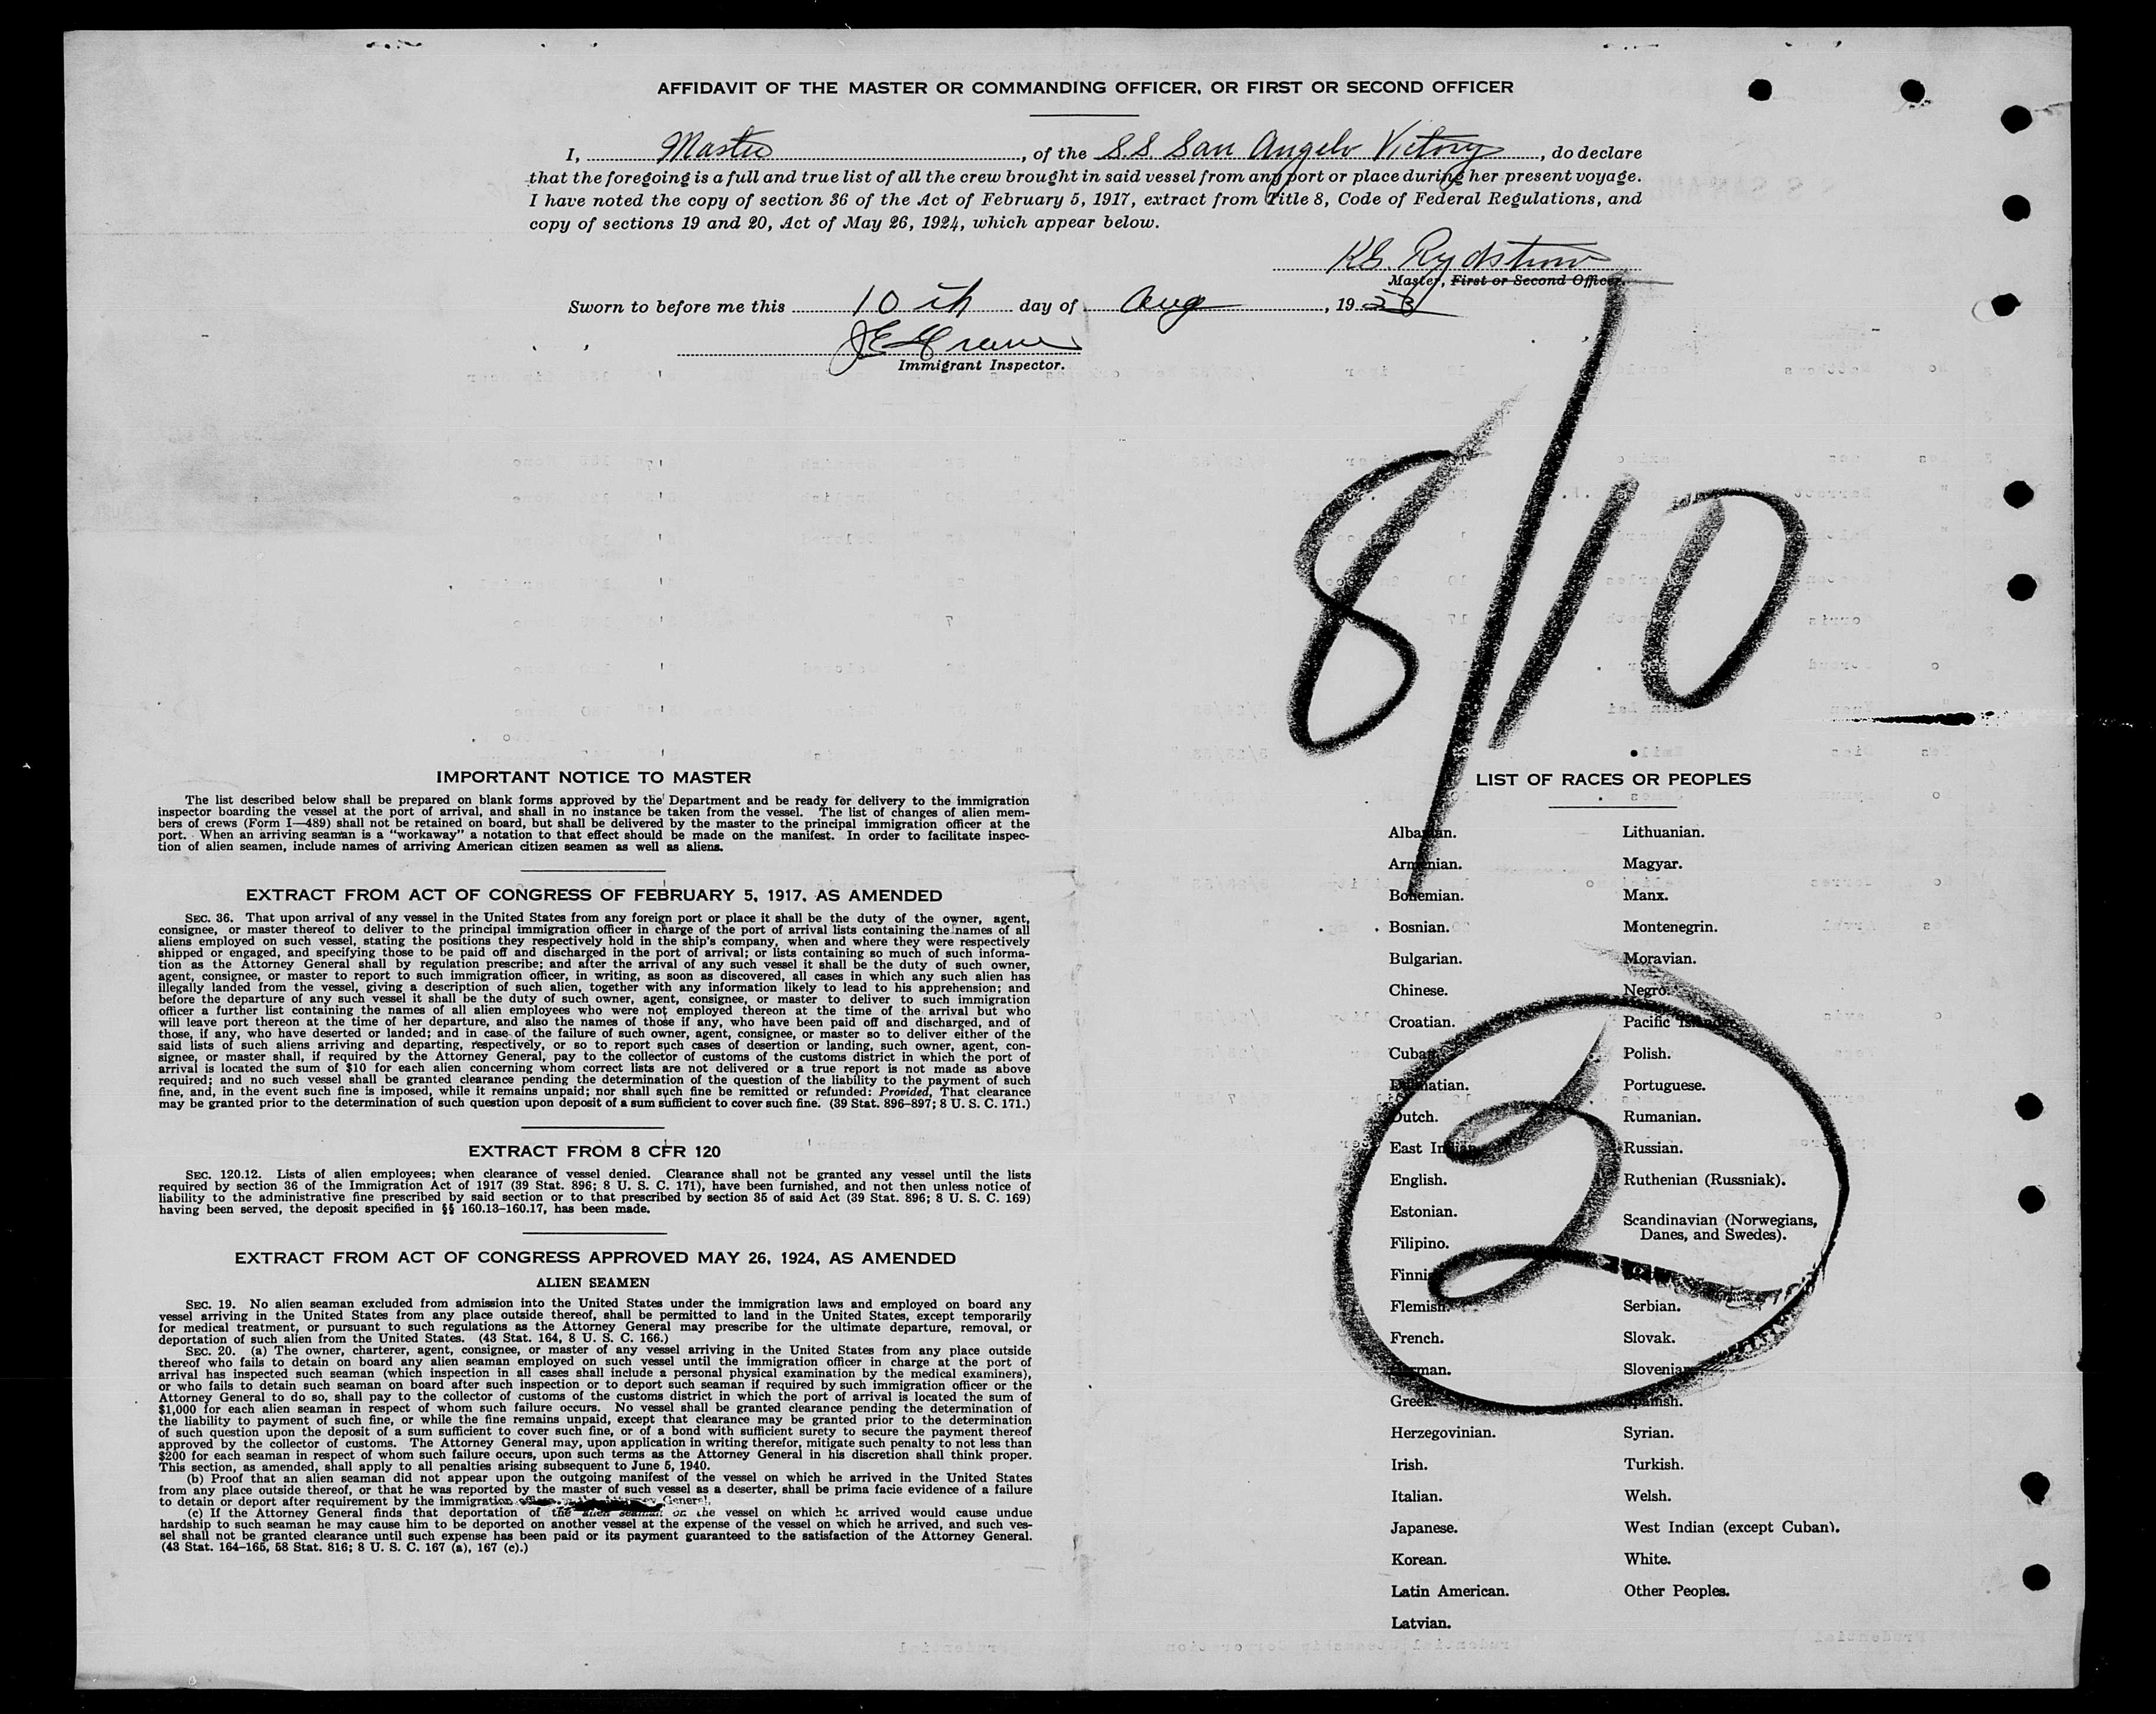 AFFIDAVIT OF THE MASTER OR COMMANDING OFFICER, OR FIRST OR SECOND OFFICER
I, Master, of the S.S. San Angelo Victory, do declare
that the foregoing is a full and true list of all the crew brought in said vessel from any port or place during her present voyage.
I have noted the copy of section 36 of the Act of February 5, 1917, extract from Title 8, Code of Federal Regulations, and
copy of sections 19 and 20, Act of May 26, 1924, which appear below.
Rydstrom
Master, First or Second Officer.
Sworn to before me this 10th day of Aug, 19
Immigrant Inspector.
8/10
IMPORTANT NOTICE TO MASTER
The list described below shall be prepared on blank forms approved by the Department and be ready for delivery to the immigration
inspector boarding the vessel at the port of arrival, and shall in no instance be taken from the vessel. The list of changes of alien mem-
bers of crews (Form I—489) shall not be retained on board, but shall be delivered by the master to the principal immigration officer at the
port. When an arriving seaman is a "workaway" a notation to that effect should be made on the manifest. In order to facilitate inspec-
tion of alien seamen, include names of arriving American citizen seamen as well as aliens.
EXTRACT FROM ACT OF CONGRESS OF FEBRUARY 5, 1917, AS AMENDED
SEC. 36. That upon arrival of any vessel in the United States from any foreign port or place it shall be the duty of the owner, agent,
consignee, or master thereof to deliver to the principal immigration officer in charge of the port of arrival lists containing the names of all
aliens employed on such vessel, stating the positions they respectively hold in the ship's company, when and where they were respectively
shipped or engaged, and specifying those to be paid off and discharged in the port of arrival; or lists containing so much of such informa-
tion as the Attorney General shall by regulation prescribe; and after the arrival of any such vessel it shall be the duty of such owner,
agent, consignee, or master to report to such immigration officer, in writing, as soon as discovered, all cases in which any such alien has
illegally landed from the vessel, giving a description of such alien, together with any information likely to lead to his apprehension; and
before the departure of any such vessel it shall be the duty of such owner, agent, consignee, or master to deliver to such immigration
officer a further list containing the names of all alien employees who were not employed thereon at the time of the arrival but who
will leave port thereon at the time of her departure, and also the names of those if any, who have been paid off and discharged, and of
those, if any, who have deserted or landed; and in case of the failure of such owner, agent, consignee, or master so to deliver either of the
said lists of such aliens arriving and departing, respectively, or so to report such cases of desertion or landing, such owner, agent, con-
signee, or master shall, if required by the Attorney General, pay to the collector of customs of the customs district in which the port of
arrival is located the sum of $10 for each alien concerning whom correct lists are not delivered or a true report is not made as above
required; and no such vessel shall be granted clearance pending the determination of the question of the liability to the payment of such
fine, and, in the event such fine is imposed, while it remains unpaid; nor shall such fine be remitted or refunded: Provided, That clearance
may be granted prior to the determination of such question upon deposit of a sum sufficient to cover such fine. (39 Stat. 896-897; 8 U. S. C. 171.)
EXTRACT FROM 8 CFR 120
SEC. 120.12. Lists of alien employees; when clearance of vessel denied. Clearance shall not be granted any vessel until the lists
required by section 36 of the Immigration Act of 1917 (39 Stat. 896; 8 U. S. C. 171), have been furnished, and not then unless notice of
liability to the administrative fine prescribed by said section or to that prescribed by section 35 of said Act (39 Stat. 896; 8 U. S. C. 169)
having been served, the deposit specified in §§ 160.13-160.17, has been made.
EXTRACT FROM ACT OF CONGRESS APPROVED MAY 26, 1924, AS AMENDED
ALIEN SEAMEN
SEC. 19. No alien seaman excluded from admission into the United States under the immigration laws and employed on board any
vessel arriving in the United States from any place outside thereof, shall be permitted to land in the United States, except temporarily
for medical treatment, or pursuant to such regulations as the Attorney General may prescribe for the ultimate departure, removal, or
deportation of such alien from the United States. (43 Stat. 164, 8 U. S. C. 166.)
SEC. 20. (a) The owner, charterer, agent, consignee, or master of any vessel arriving in the United States from any place outside
thereof who fails to detain on board any alien seaman employed on such vessel until the immigration officer in charge at the port of
arrival has inspected such seaman (which inspection in all cases shall include a personal physical examination by the medical examiners),
or who fails to detain such seaman on board after such inspection or to deport such seaman if required by such immigration officer or the
Attorney General to do so, shall pay to the collector of customs of the customs district in which the port of arrival is located the sum of
$1,000 for each alien seaman in respect of whom such failure occurs. No vessel shall be granted clearance pending the determination of
the liability to payment of such fine, or while the fine remains unpaid, except that clearance may be granted prior to the determination
of such question upon the deposit of a sum sufficient to cover such fine, or of a bond with sufficient surety to secure the payment thereof
approved by the collector of customs. The Attorney General may, upon application in writing therefor, mitigate such penalty to not less than
$200 for each seaman in respect of whom such failure occurs, upon such terms as the Attorney General in his discretion shall think proper.
This section, as amended, shall apply to all penalties arising subsequent to June 5, 1940.
(b) Proof that an alien seaman did not appear upon the outgoing manifest of the vessel on which he arrived in the United States
from any place outside thereof, or that he was reported by the master of such vessel as a deserter, shall be prima facie evidence of a failure
to detain or deport after requirement by the immigration General.
(c) If the Attorney General finds that deportation of the alien seaman on the vessel on which he arrived would cause undue
hardship to such seaman he may cause him to be deported on another vessel at the expense of the vessel on which he arrived, and such ves-
sel shall not be granted clearance until such expense has been paid or its payment guaranteed to the satisfaction of the Attorney General.
(43 Stat. 164-165, 58 Stat. 816; 8 U. S. C. 167 (a), 167 (c).)
LIST OF RACES OR PEOPLES
Albanian.
Armenian.
Bohemian.
Bosnian.
Bulgarian.
Chinese.
Croatian.
Cuban.
Dalmatian.
Dutch.
East Indian.
English.
Estonian.
Filipino.
Flemish.
French.
German.
Greek.
Herzegovinian.
Irish.
Italian.
Japanese.
Korean.
Latin American.
Latvian.
Lithuanian.
Magyar.
Manx.
Montenegrin.
Moravian.
Negro.
Pacific Islander.
Polish.
Portuguese.
Rumanian.
Russian.
Ruthenian (Russniak).
Scandinavian (Norwegians,
Danes, and Swedes).
Serbian.
Slovak.
Slovenian.
Spanish.
Syrian.
Turkish.
Welsh.
West Indian (except Cuban).
White.
Other Peoples.
2